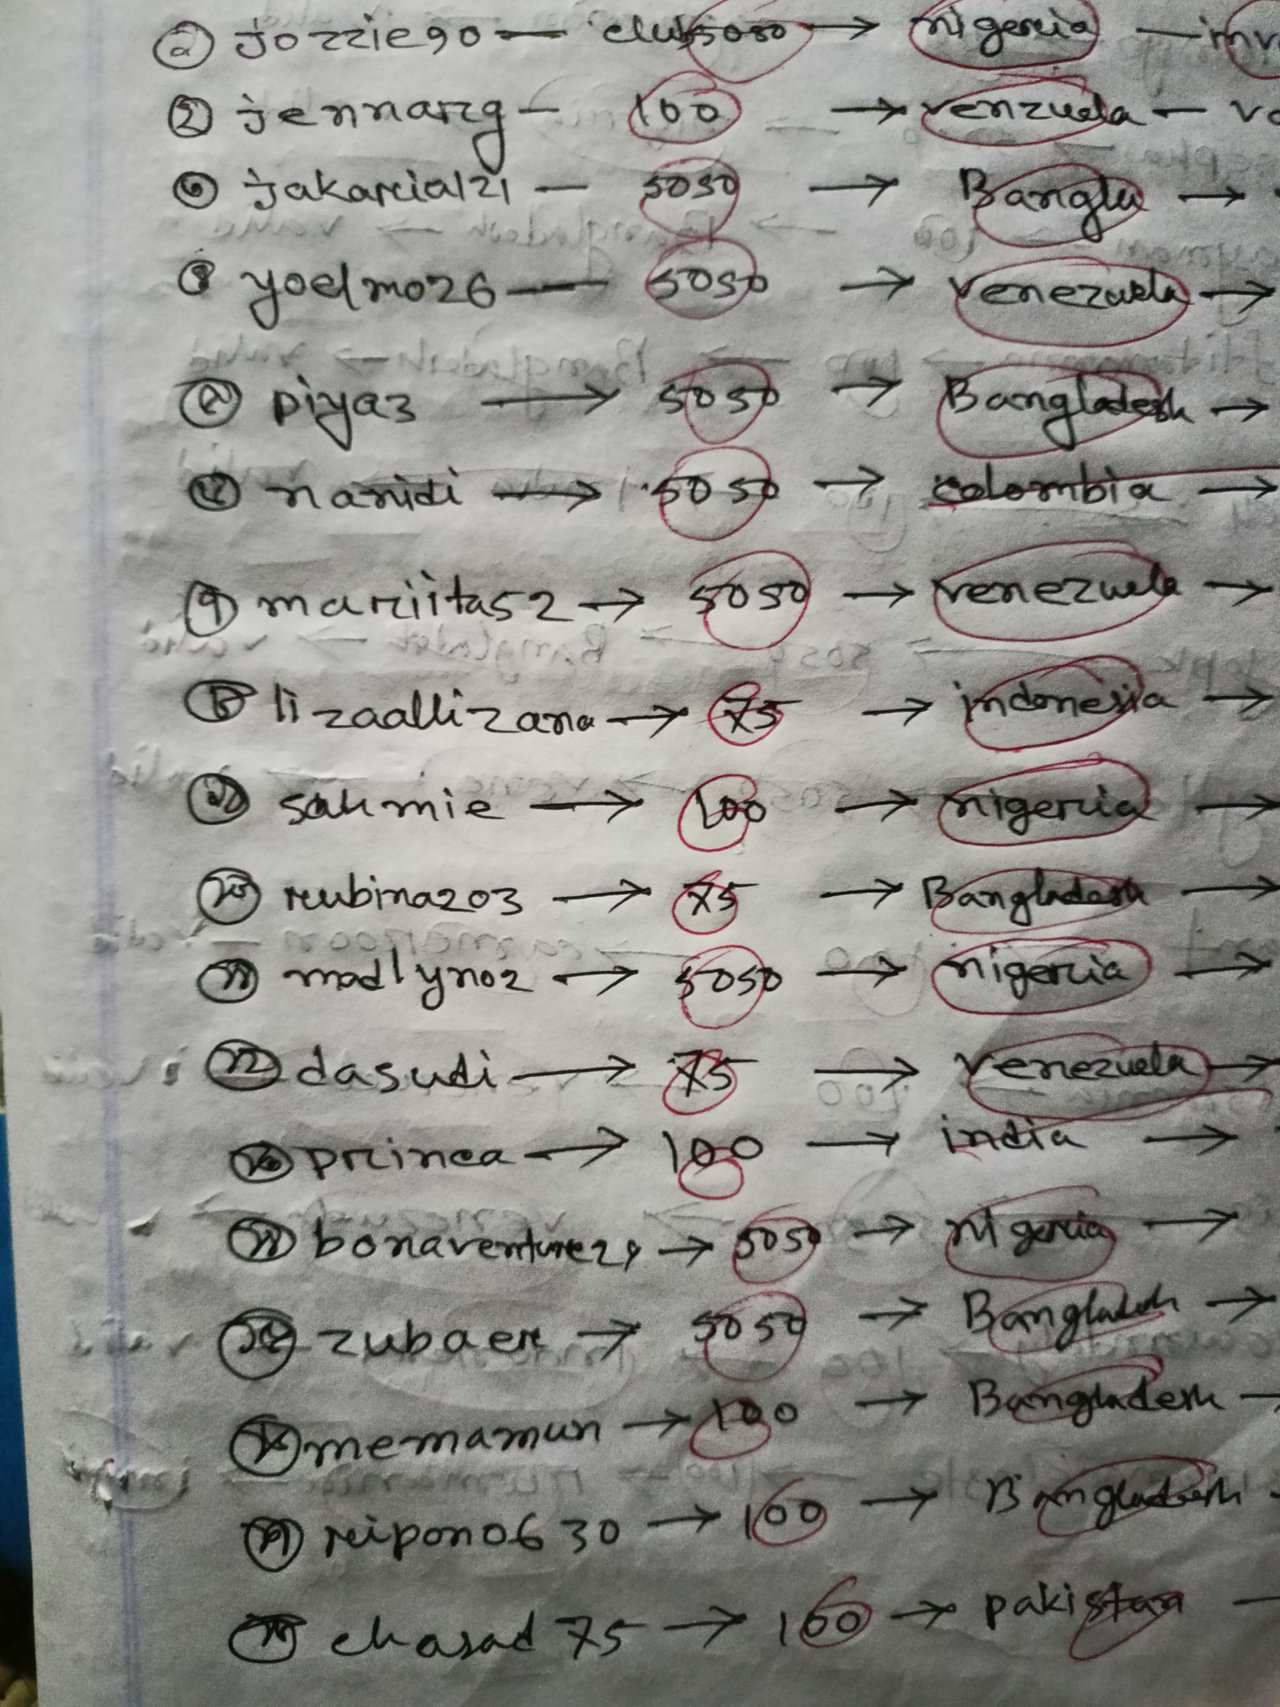 ১ jozzie90 — club5050 → nigeria — inv
২ jennarzg — 100 → venzuela — va
৩ jakaria121 — 5050 → Bangla →
৪ yoelmo26 — 5050 → venezuela →
৫ piya3 → 5050 → Bangladesh →
৬ naridi → 5050 → colombia →
৭ mariita52 → 5050 → venezuela →
৮ lizaallizana → 75 → indonesia →
sahmie → 100 → nigeria →
১০ rubina203 → 75 → Bangladesh →
১১ madlyn02 → 5050 → nigeria →
১২ dasudi → 75 → venezuela →
১৩ princa → 100 → india →
bonaventure29 → 5050 → nigeria →
১৫ zubaer → 5050 → Bangladesh →
১৬ memamun → 100 → Bangladesh —
১৭ ripon0630 → 100 → Bangladesh
১৮ chasad75 → 100 → pakistan —